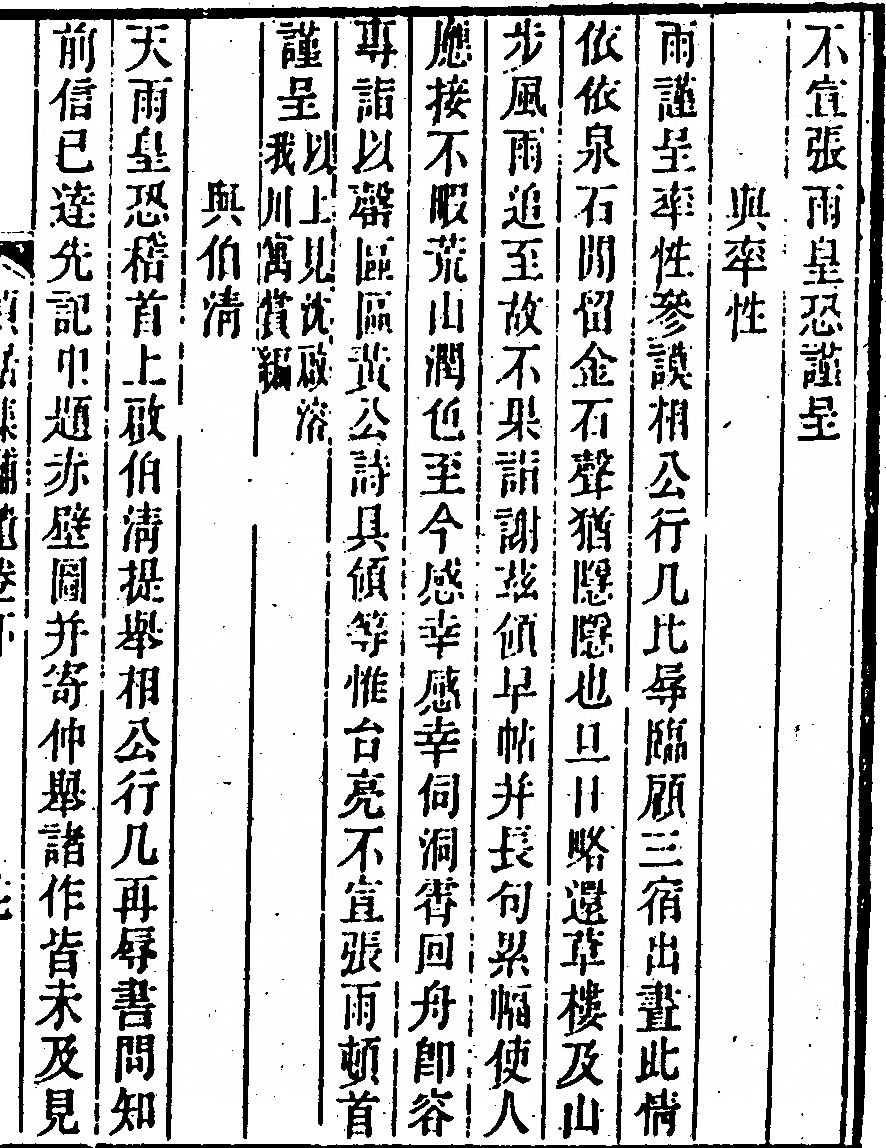 不宣張雨皇恐謹呈
與率性
雨謹呈率性參謨相公行几比辱臨顧三宿出晝此情
依依泉石閒留金石聲猶隱隱也旦日略還草樓及山
步風雨追至故不果詣謝玆領早帖并長句累幅使人
應接不暇荒山潤色至今感幸感幸伺洞霄回舟卽容
專詣以罄區區黃公詩具領等惟台亮不宣張雨頓首
謹呈以上見沈啟溶
我川寓賞編
與伯淸
天雨皇恐稽首上啟伯淸提舉相公行几再辱書問知
前信已達先記巾題赤壁圖并寄仲舉諸作皆未及見
貞居集補遺卷下